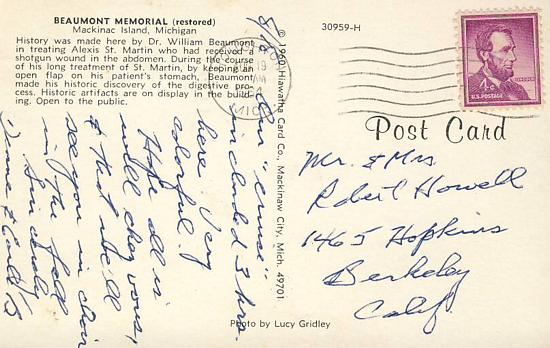 BEAUMONT MEMORIAL (restored)
Mackinac Island, Michigan
History was made here by Dr. William Beaumont
in treating Alexis St. Martin who had received a
shotgun wound in the abdomen. During the course
of his long treatment of St. Martin, by keeping an
open flap on his patient's stomach, Beaumont
made his historic discovery of the digestive pro-
cess. Historic artifacts are on display in the build-
ing. Open to the public.
30959-H
© 1960 Hiawatha Card Co., Mackinaw City, Mich. 49701
Photo by Lucy Gridley
Post Card
4¢
LINCOLN
U.S. POSTAGE
19
AM
MICH
Our "cruise"
included 3 hrs.
here. Very
colorful.
Hope all is
well, chez vous,
& that we'll
see you in choir
in the fall
Mr. & Mrs
Robert Howell
1465 Hopkins
Berkeley
Calif.